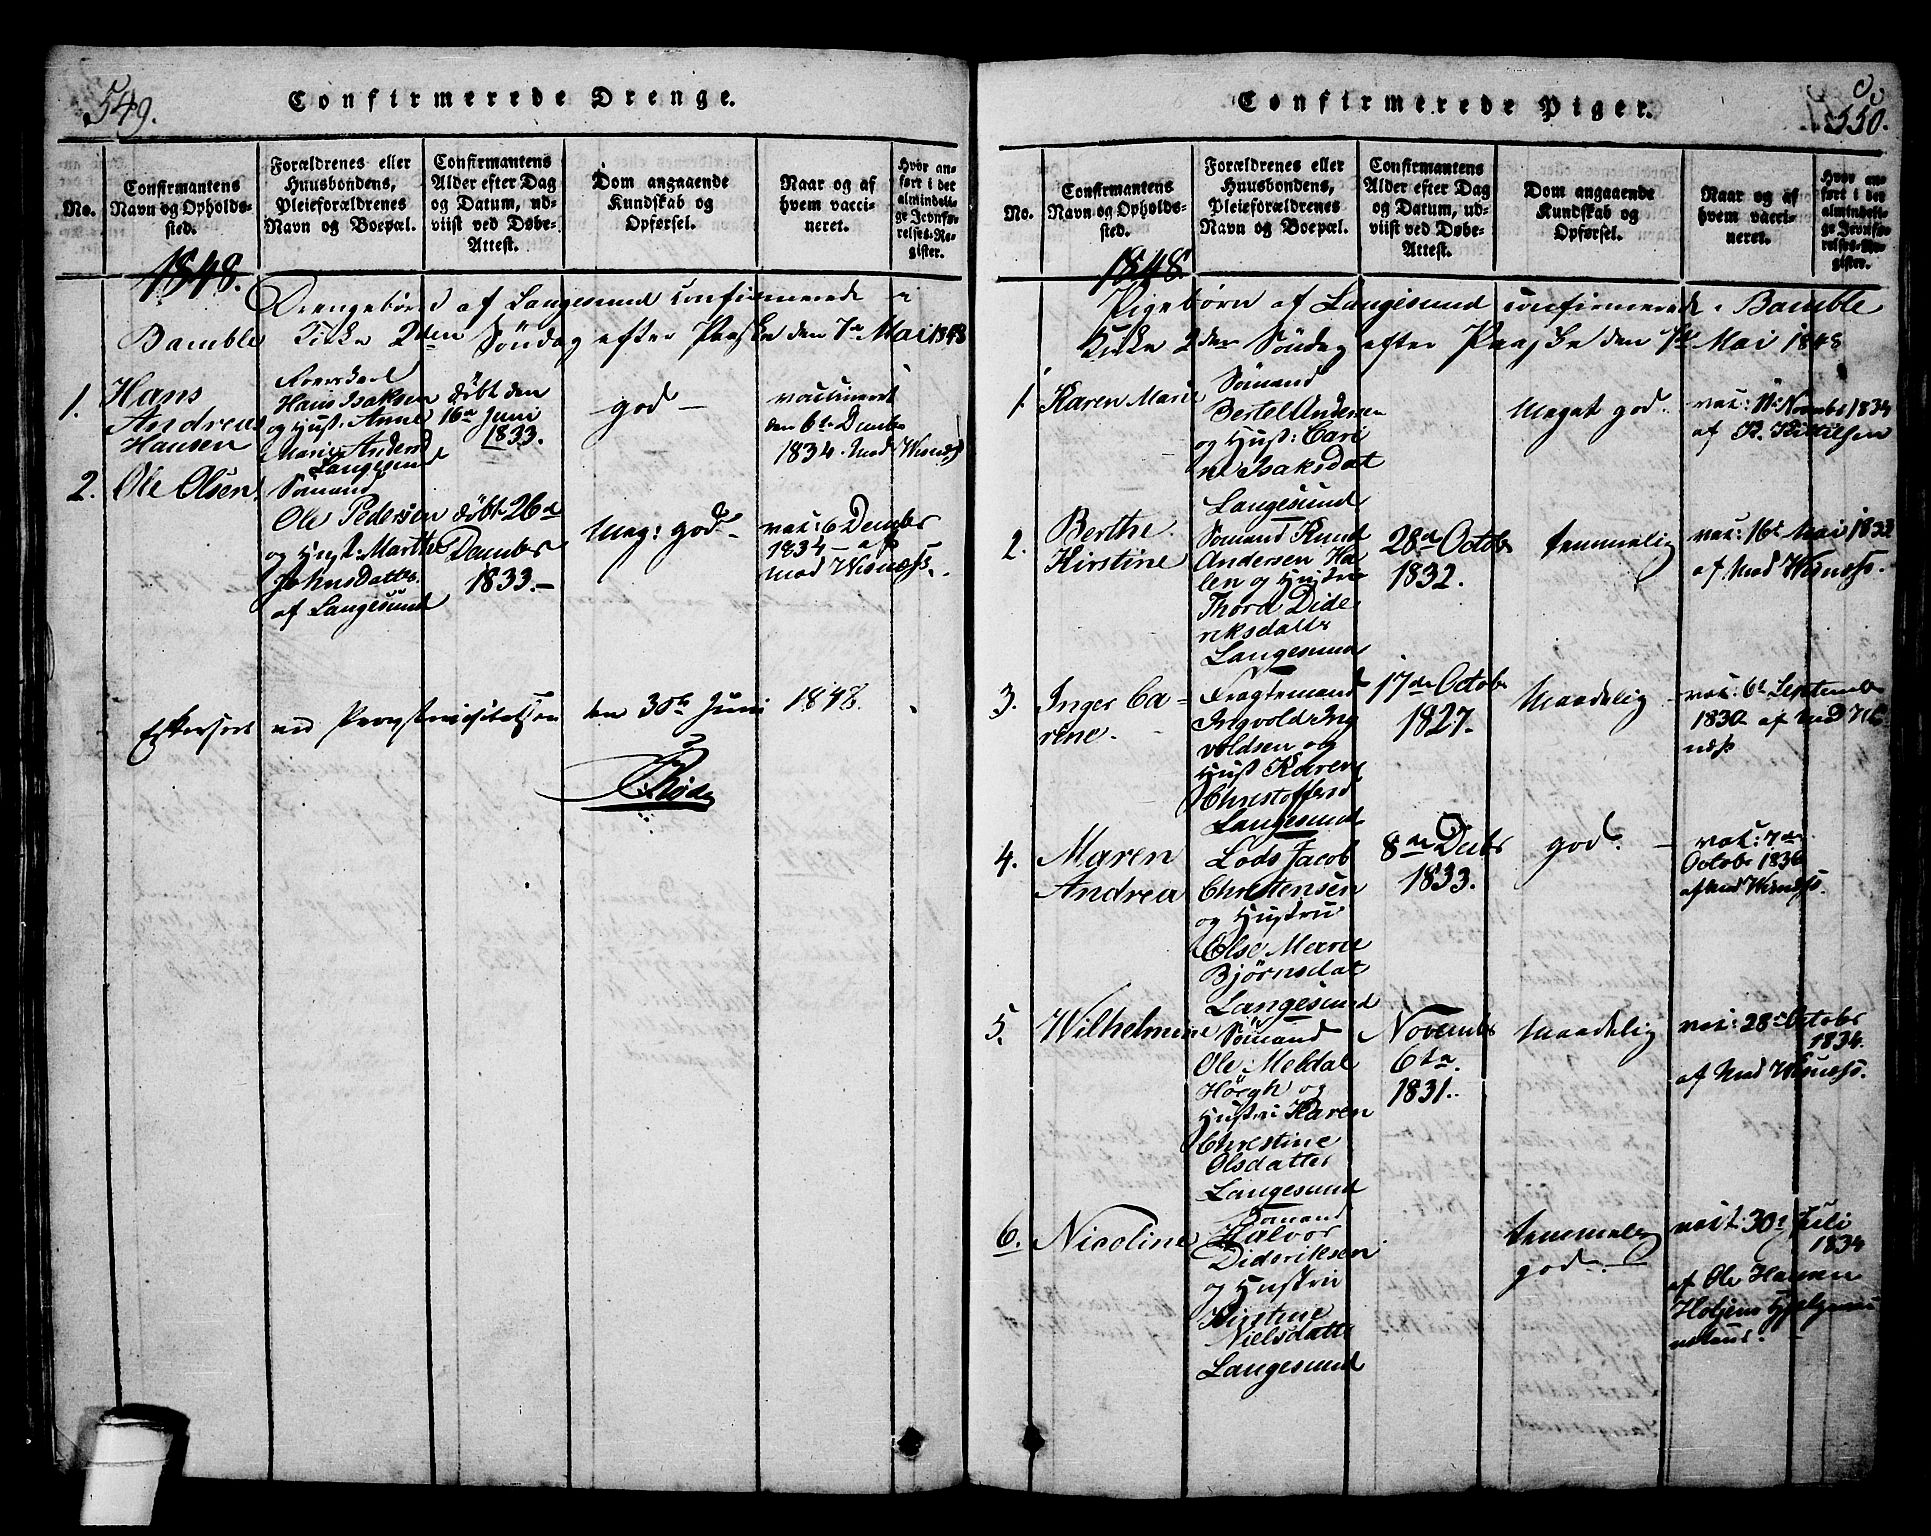 549.
Confirmerede Drenge.
No.
Confirmantens Navn og Opholdssted.
Forældrenes eller Huusbondens, Pleieforældrenes Navn og Boepæl.
Confirmantens Alder efter Dag og Datum, udviist ved Døbe-Attest.
Dom angaaende Kundskab og Opførsel.
Naar og af hvem vaccineret.
Hvor anført i det almindelige Jevnførelses-Register.
1848.
Drengebörn af Langesund confirmerede i
Bamble Kirke 2den Söndag efter Paaske den 7de Mai 1848
1. Hans
Andreas
Hansen
Hans Isaksen
og Hust: Anne
Marie Andersd
Langesund
döbt den
16de Juni
1833.
god —
vaccineret
den 6te Decembr
1834. Mad Wisness
2. Ole Olsen
Sömand
Ole Pedersen
og Hust: Marthe
Johnsdatter
af Langesund
döbt 26de
Decembr
1833. —
Meg: god —
vac: 6 Decembr
1834 — af
Mad Wisness.
Efterseet ved Provstevisitatsen den 30te Juni 1848.
550.
Confirmerede Piger.
No.
Confirmantens Navn og Opholdssted.
Forældrenes eller Huusbondens, Pleieforældrenes Navn og Boepæl.
Confirmantens Alder efter Dag og Datum, udviist ved Døbe-Attest.
Dom angaaende Kundskab og Opførsel.
Naar og af hvem vaccineret.
Hvor anført i det almindelige Jevnførelses-Register.
1848.
Pigebörn af Langesund confirmerede i Bamble
Kirke 2den Söndag efter Paaske den 7de Mai 1848
1 Karen Marie
Sömand
Bertel Andersen
og Hust: Cari
ne Isaksdat
Langesund
Meget god.
vac: 11te Novembr 1834
af K. Kittilsen
2. Berthe
Kirstine
Sömand Knud
Andersen Ha
len og Hustru
Thora Dide
riksdatter
Langesund
28de Octobr
1832.
temmelig
vac: 16de Mai 1833
af Mad Wisness.
3. Inger Ca-
rine.
Fragtemand
Ingvold Ing
voldsen og
Hust Karen
Christoffersd
Langesund
17de Octobr
1827.
Maadelig
vac: 6te Septembr
1830 af Mad Wis
ness
4. Maren
Andrea
Lods Jacob
Christensen
og Hustru
Else Marie
Björnsdat
Langesund
8de Decbr
1833.
god. —
vac: 7de
Octobr 1836
af Mad Wisness.
5. Wilhelmine
Sömand
Ole Meldal
Hörgh og
Hustru Karen
Christine
Olsdatter
Langesund
Novembr
6te
1831.
Maadelig
vac: 28de Octobr
1834.
af Mad Wisness.
6. Nicoline
Sömand
Halvor
Dideriksen
og Hustru
Kirstine
Nielsdatter
Langesund
temmelig
god. —
vac: 30te Juli
1834
af Ole Hansen